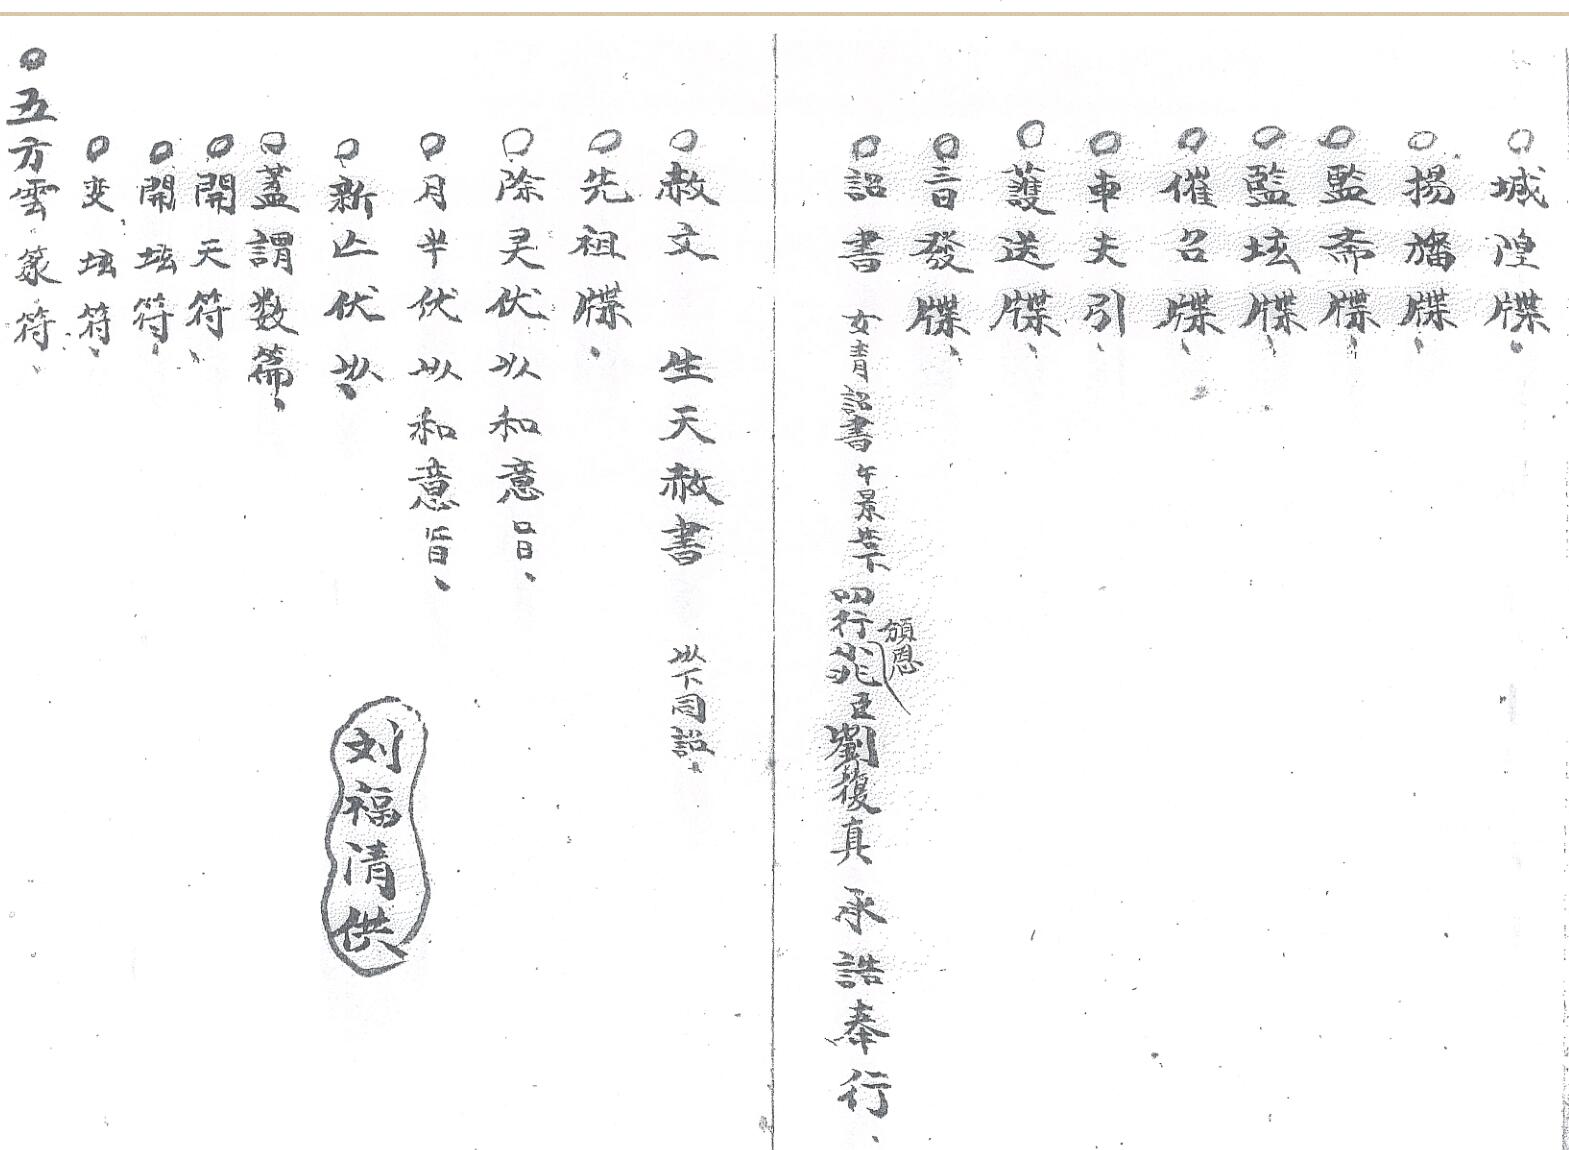 ○城隍牒、
○揚旛牒、
○監斎牒、
○監坛牒、
○催召牒、
○車夫引、
○護送牒、
○三日發牒、
○詔書 女青詔書 午景告下 四行兆臣劉復真 承誥奉行、
頒恩
○赦文 生天赦書 以下同詔、
○先祖牒、
○除灵伏以和意旨、
○月半伏以和意旨、
○新亡伏以、
刘福清供
○蓋謂数篇、
○開天符、
○開坛符、
○变坛符、
○五方雲篆符、